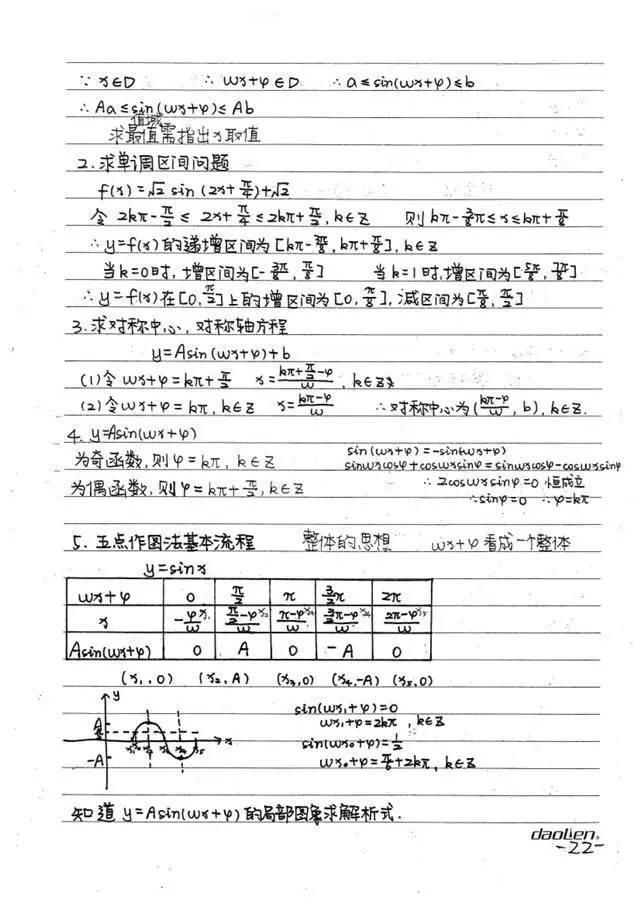 ∵ x∈D ∴ wx+φ∈D ∴ a≤sin(wx+φ)≤b
∴ Aa≤sin(wx+φ)≤Ab
值域
求最值需指出x取值
2.求单调区间问题
f(x)=√2 sin(2x+π/4)+√2
令 2kπ-π/2≤2x+π/4≤2kπ+π/2,k∈Z 则 kπ-3/8π≤x≤kπ+π/8
∴y=f(x)的递增区间为[kπ-3π/8,kπ+π/8],k∈Z
当k=0时,增区间为[-3π/8,π/8] 当k=1时,增区间为[5π/8,9π/8]
∴y=f(x)在[0,π/2]上的增区间为[0,π/8],减区间为[π/8,π/2]
3.求对称中心,对称轴方程
y=Asin(wx+φ)+b
(1)令wx+φ=kπ+π/2 x=(kπ+π/2-φ)/w,k∈Z
(2)令wx+φ=kπ,k∈Z x=(kπ-φ)/w ∴对称中心为((kπ-φ)/w,b),k∈Z.
4.y=Asin(wx+φ)
为奇函数,则φ=kπ,k∈Z
为偶函数,则φ=kπ+π/2,k∈Z
sin(wx+φ)=-sin(-wx+φ)
sinwxcosφ+coswxsinφ=sinwxcosφ-coswxsinφ
∴2coswxsinφ=0 恒成立
∴sinφ=0 ∴φ=kπ
5.五点作图法基本流程 整体的思想 wx+φ看成一个整体
y=sinx
wx+φ 0 π/2 π 3/2π 2π
x -φ/w x₁ (π/2-φ)/w x₂ (π-φ)/w x₃ (3/2π-φ)/w x₄ (2π-φ)/w x₅
Asin(wx+φ) 0 A 0 -A 0
(x₁,0) (x₂,A) (x₃,0) (x₄,-A) (x₅,0)
y
A
-A
x₁ x₂ x₃ x₄ x₅ x
sin(wx₁+φ)=0
wx₁+φ=2kπ,k∈Z
sin(wx₀+φ)=1/2
wx₀+φ=π/6+2kπ,k∈Z
知道y=Asin(wx+φ)的局部图象求解析式.
daolien
-22-